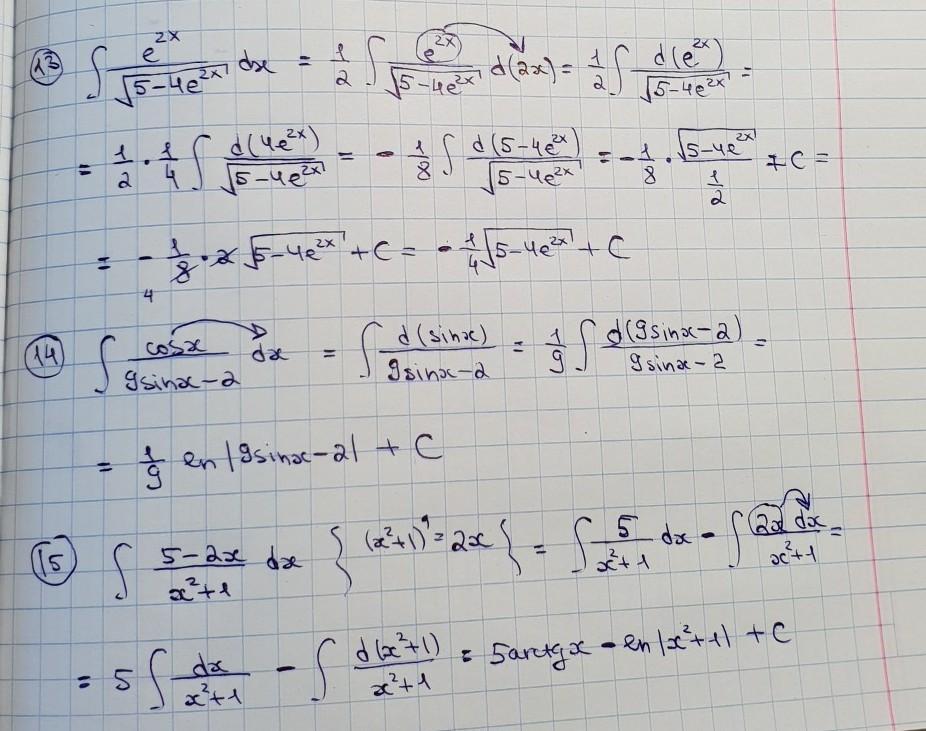 13) ∫ e^{2x}/√(5-4e^{2x}) dx = 1/2 ∫ e^{2x}/√(5-4e^{2x}) d(2x) = 1/2 ∫ d(e^{2x})/√(5-4e^{2x}) =
= 1/2 · 1/4 ∫ d(4e^{2x})/√(5-4e^{2x}) = - 1/8 ∫ d(5-4e^{2x})/√(5-4e^{2x}) = - 1/8 · √(5-4e^{2x})/(1/2) + C =
= - 1/8 · 2 √(5-4e^{2x}) + C = - 1/4 √(5-4e^{2x}) + C
4
14) ∫ cosx/(9sinx-2) dx = ∫ d(sinx)/(9sinx-2) = 1/9 ∫ d(9sinx-2)/(9sinx-2) =
= 1/9 ln|9sinx-2| + C
15) ∫ (5-2x)/(x²+1) dx { (x²+1)' = 2x } = ∫ 5/(x²+1) dx - ∫ 2x dx/(x²+1) =
= 5 ∫ dx/(x²+1) - ∫ d(x²+1)/(x²+1) = 5arctgx - ln|x²+1| + C